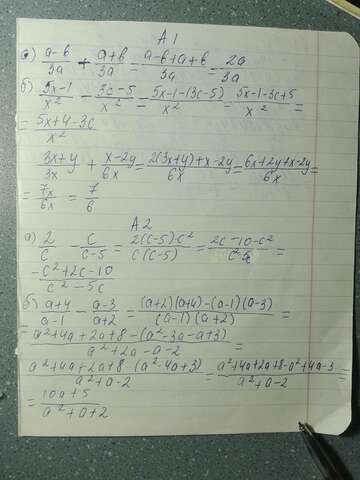 A1
а) (a-b)/3a + (a+b)/3a = (a-b+a+b)/3a = 2a/3a
б) (5x-1)/x² - (3c-5)/x² = (5x-1-(3c-5))/x² = (5x-1-3c+5)/x² =
= (5x+4-3c)/x²
(3x+y)/3x + (x-2y)/6x = (2(3x+y)+x-2y)/6x = (6x+2y+x-2y)/6x =
= 7x/6x = 7/6
A2
а) 2/c - c/(c-5) = (2(c-5)-c²)/(c(c-5)) = (2c-10-c²)/(c²-5c) =
(-c²+2c-10)/(c²-5c)
б) (a+4)/(a-1) - (a-3)/(a+2) = ((a+2)(a+4)-(a-1)(a-3))/((a-1)(a+2)) =
= (a²+4a+2a+8-(a²-3a-a+3))/(a²+2a-a-2)
(a²+4a+2a+8-(a²-4a+3))/(a²+a-2) = (a²+4a+2a+8-a²+4a-3)/(a²+a-2) =
= (10a+5)/(a²+a+2)